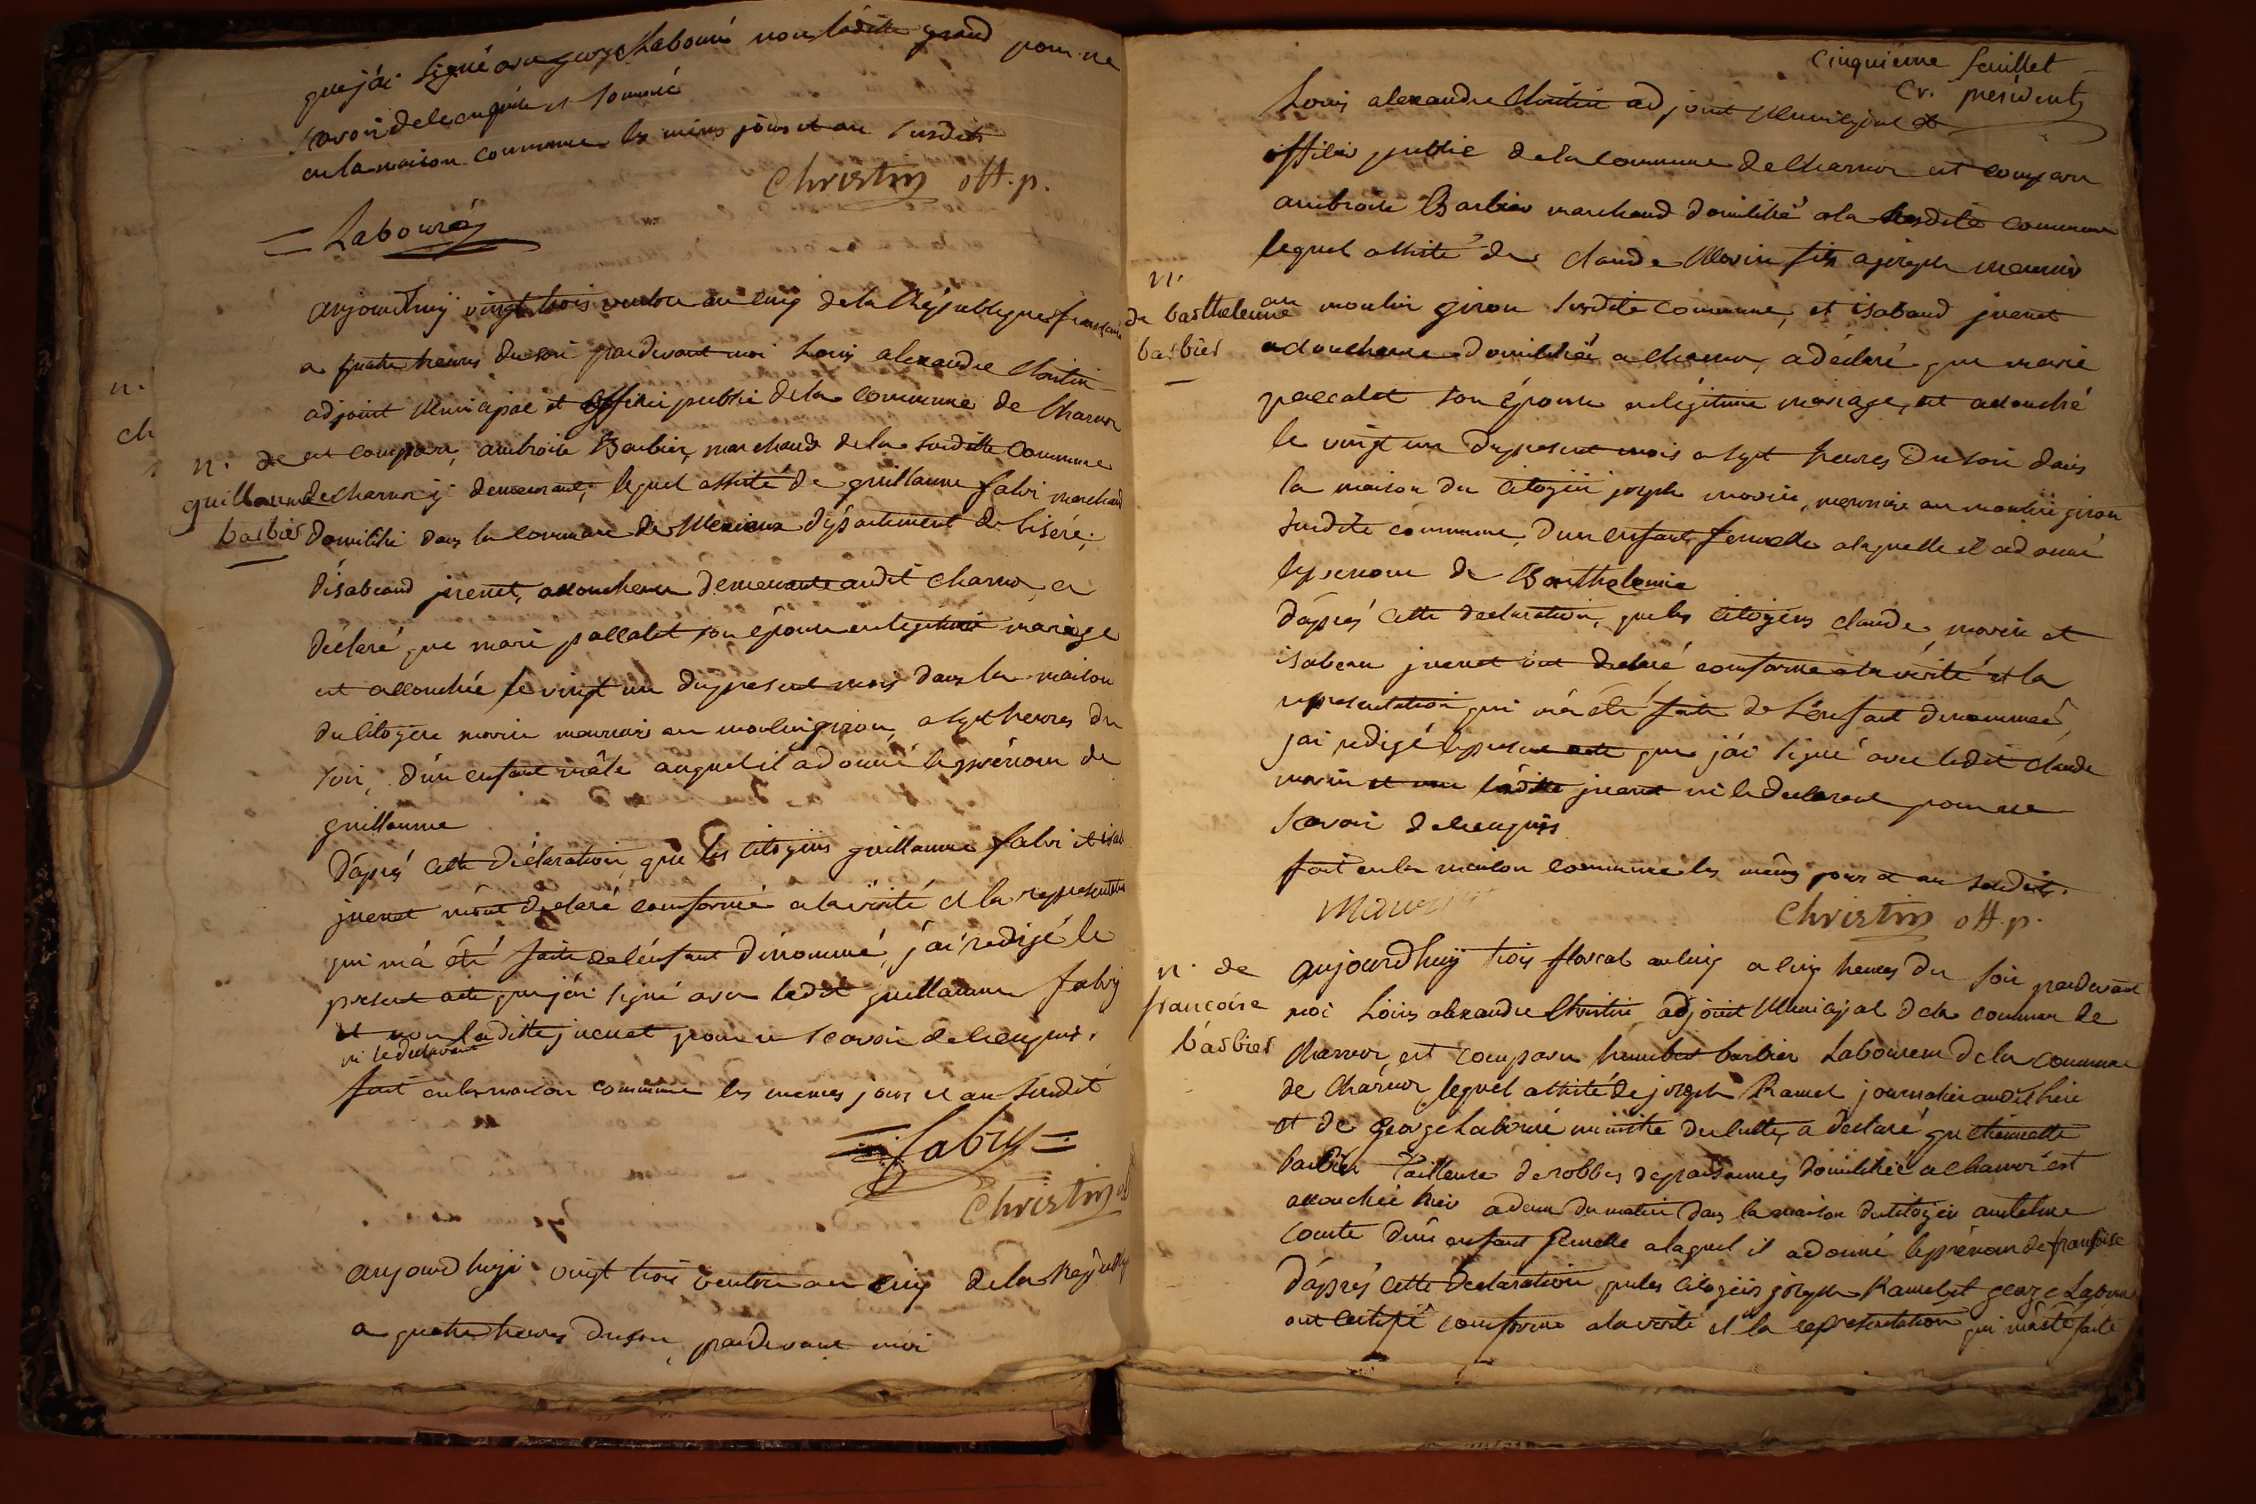 que j'ai signé avec george Labouré non ladite grand pour ne
scavoir de ce enquise et sommé
en la maison commune les mêmes jours et an susdits
Christin off. p.
Labouré
aujourdhuy vingt trois ventose an cinq de la République francaise
a quatre heures du soir pardevant moi Louis alexandre Christin
adjoint Municipal et officier public de la commune de Charnoz
n. de
guillaume
barbier
est comparu, ambroise Barbier, marchand de la susditte commune
de charnoz y demeurant, lequel assisté de guillaume fabri marchand
domicilié dans la commune de Meximieux département de lisère,
d'isabeaud juenet, accoucheuse demeurante audit charnoz, a
déclaré que marie passalet son épouse en legitime mariage
est accouchée le vingt un du present mois dans la maison
du citoyen morin meunier au moulin giron, a sept heures du
soir, d'un enfant mâle auquel il a donné le prénom de
guillaume
D'après cette déclaration, que les citoyens guillaume fabri et isab
juenet m'ont déclaré conforme a la vérité et la representation
qui m'a été faite de l'enfant dénommé, j'ai redigé le
present acte que j'ai signé avec ledit guillaume fabry
et non laditte juenet pour ne scavoir de ce enquis.
ni le declarant
fait en la maison commune les memes jours et an susdit
fabry
Christin
aujourdhuy vingt trois ventose an cinq de la Republiq
a quatre heures du soir, pardevant moi
Cinquiéme feuillet
Cr. président
Louis alexandre Christin adjoint Municipal et
officier public de la commune de Charnoz est comparu
ambroise Barbier marchand domicilié a la susdite commune
lequel assisté de claude Morin fils a joseph meunier
n.
de barthelemie
barbier
au moulin giron susdite commune, et isabaud juenet
accoucheuse domiciliée a charnoz, a déclaré que marie
passalet son épouse en légitime mariage, est accouché
le vingt un du present mois a sept heures du soir dans
la maison du citoyen joseph morin, meunier au moulin giron
susdite commune, d'un enfant femelle a laquelle il a donné
le prenom de Barthelemie
D'après cette declaration, que les citoyens claude morin et
isabeau juenet ont declaré conforme a la vérité et la
representation qui m'a été faite de l'enfant denommé,
j'ai redigé le present acte que j'ai signé avec ledit claude
morin et non ladite juenet ni le declarant pour ne
scavoir de ce enquis
fait en la maison commune les mêmes jours et an susdits.
Christin off. p.
n. de
francoise
barbier
aujourdhuy trois floreal an cinq a cinq heures du soir pardevant
moi Louis alexandre Christin adjoint Municipal de la commune de
charnoz, est comparu humbert barbier Laboureur de la commune
de Charnoz, lequel assisté de joseph Ramel journalier audit lieu
et de George Labouré ministre du culte, a déclaré que etiennette
barbier Tailleuse de robbes de paisannes domiciliée a charnoz est
accouchée hier a deux du matin dans la maison du citoyen antelme
comte d'un enfant femelle a laquel il a donné le prénom de francoise
D'après cette declaration que les citoyens joseph Ramel et george Labouré
ont certifié conforme a la verité et la representation qui m'a été faite